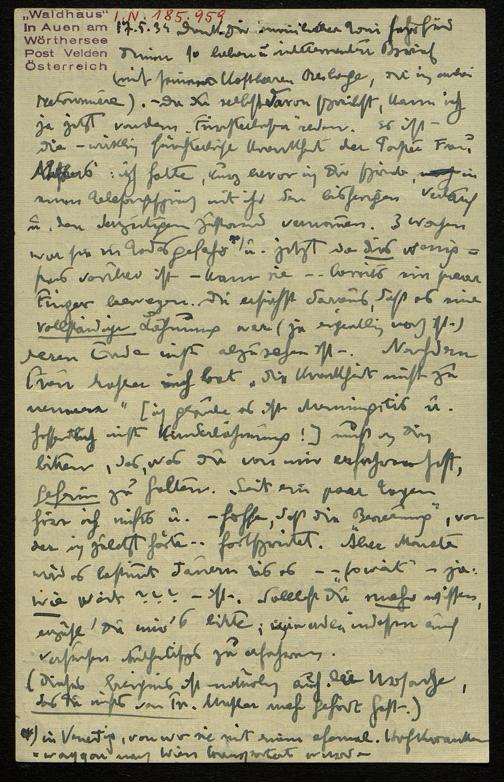 „Waldhaus"
In Auen am
Wörthersee
Post Velden
Österreich
I.N. 185.959
17.5.34 Dank Dir
Deinen so lieben u. interessanten Brief
(mit seiner kostbaren Beilage, die ich anbei
retourniere). – Da Du selbst davon schreibst, kann ich
ja jetzt von dem „Fürchterlichen" reden. Es ist –
die – wirklich fürchterliche Krankheit der Tochter Frau
ich hatte, kurz bevor ich Dir schrieb, in
einem Telefongespräch mit ihr den bisherigen Verlauf
u. den derzeitigen Zustand vernommen. 3 Wochen
war sie in Todesgefahr *) u. jetzt da dies wenig-
stens vorüber ist – kann sie – – bereits ein paar
Finger bewegen. Du ersiehst daraus, daß es eine
vollständige Lähmung war (ja eigentlich noch ist –)
deren Ende nicht abzusehen ist –. Nachdem
Frau Mahler mich bat „die Krankheit nicht zu
nennen" [ich glaube es ist Meningitis u.
hoffentlich nicht Kinderlähmung!] muß ich Dich
bitten, das, was Du von mir erfahren hast,
geheim zu halten. Seit ein paar Tagen
hör ich nichts u. – hoffe, daß die „Besserung", von
der ich zuletzt hörte – – fortschreitet. Aber Monate
wird es bestimmt dauern bis es – – „soweit" – ja:
wie weit ? ? ? – ist –. Solltest Du mehr wissen,
erzähl' Du mir's bitte; indessen auch
Authentisches zu erfahren.
(Dieses Ereignis ist natürlich auch die Ursache,
daß Du nichts von Fr. Mahler mehr gehört hast –.)
*) in Venedig, von wo sie mit einem ehemal. Hofkranken-
waggon nach Wien transportiert wurde